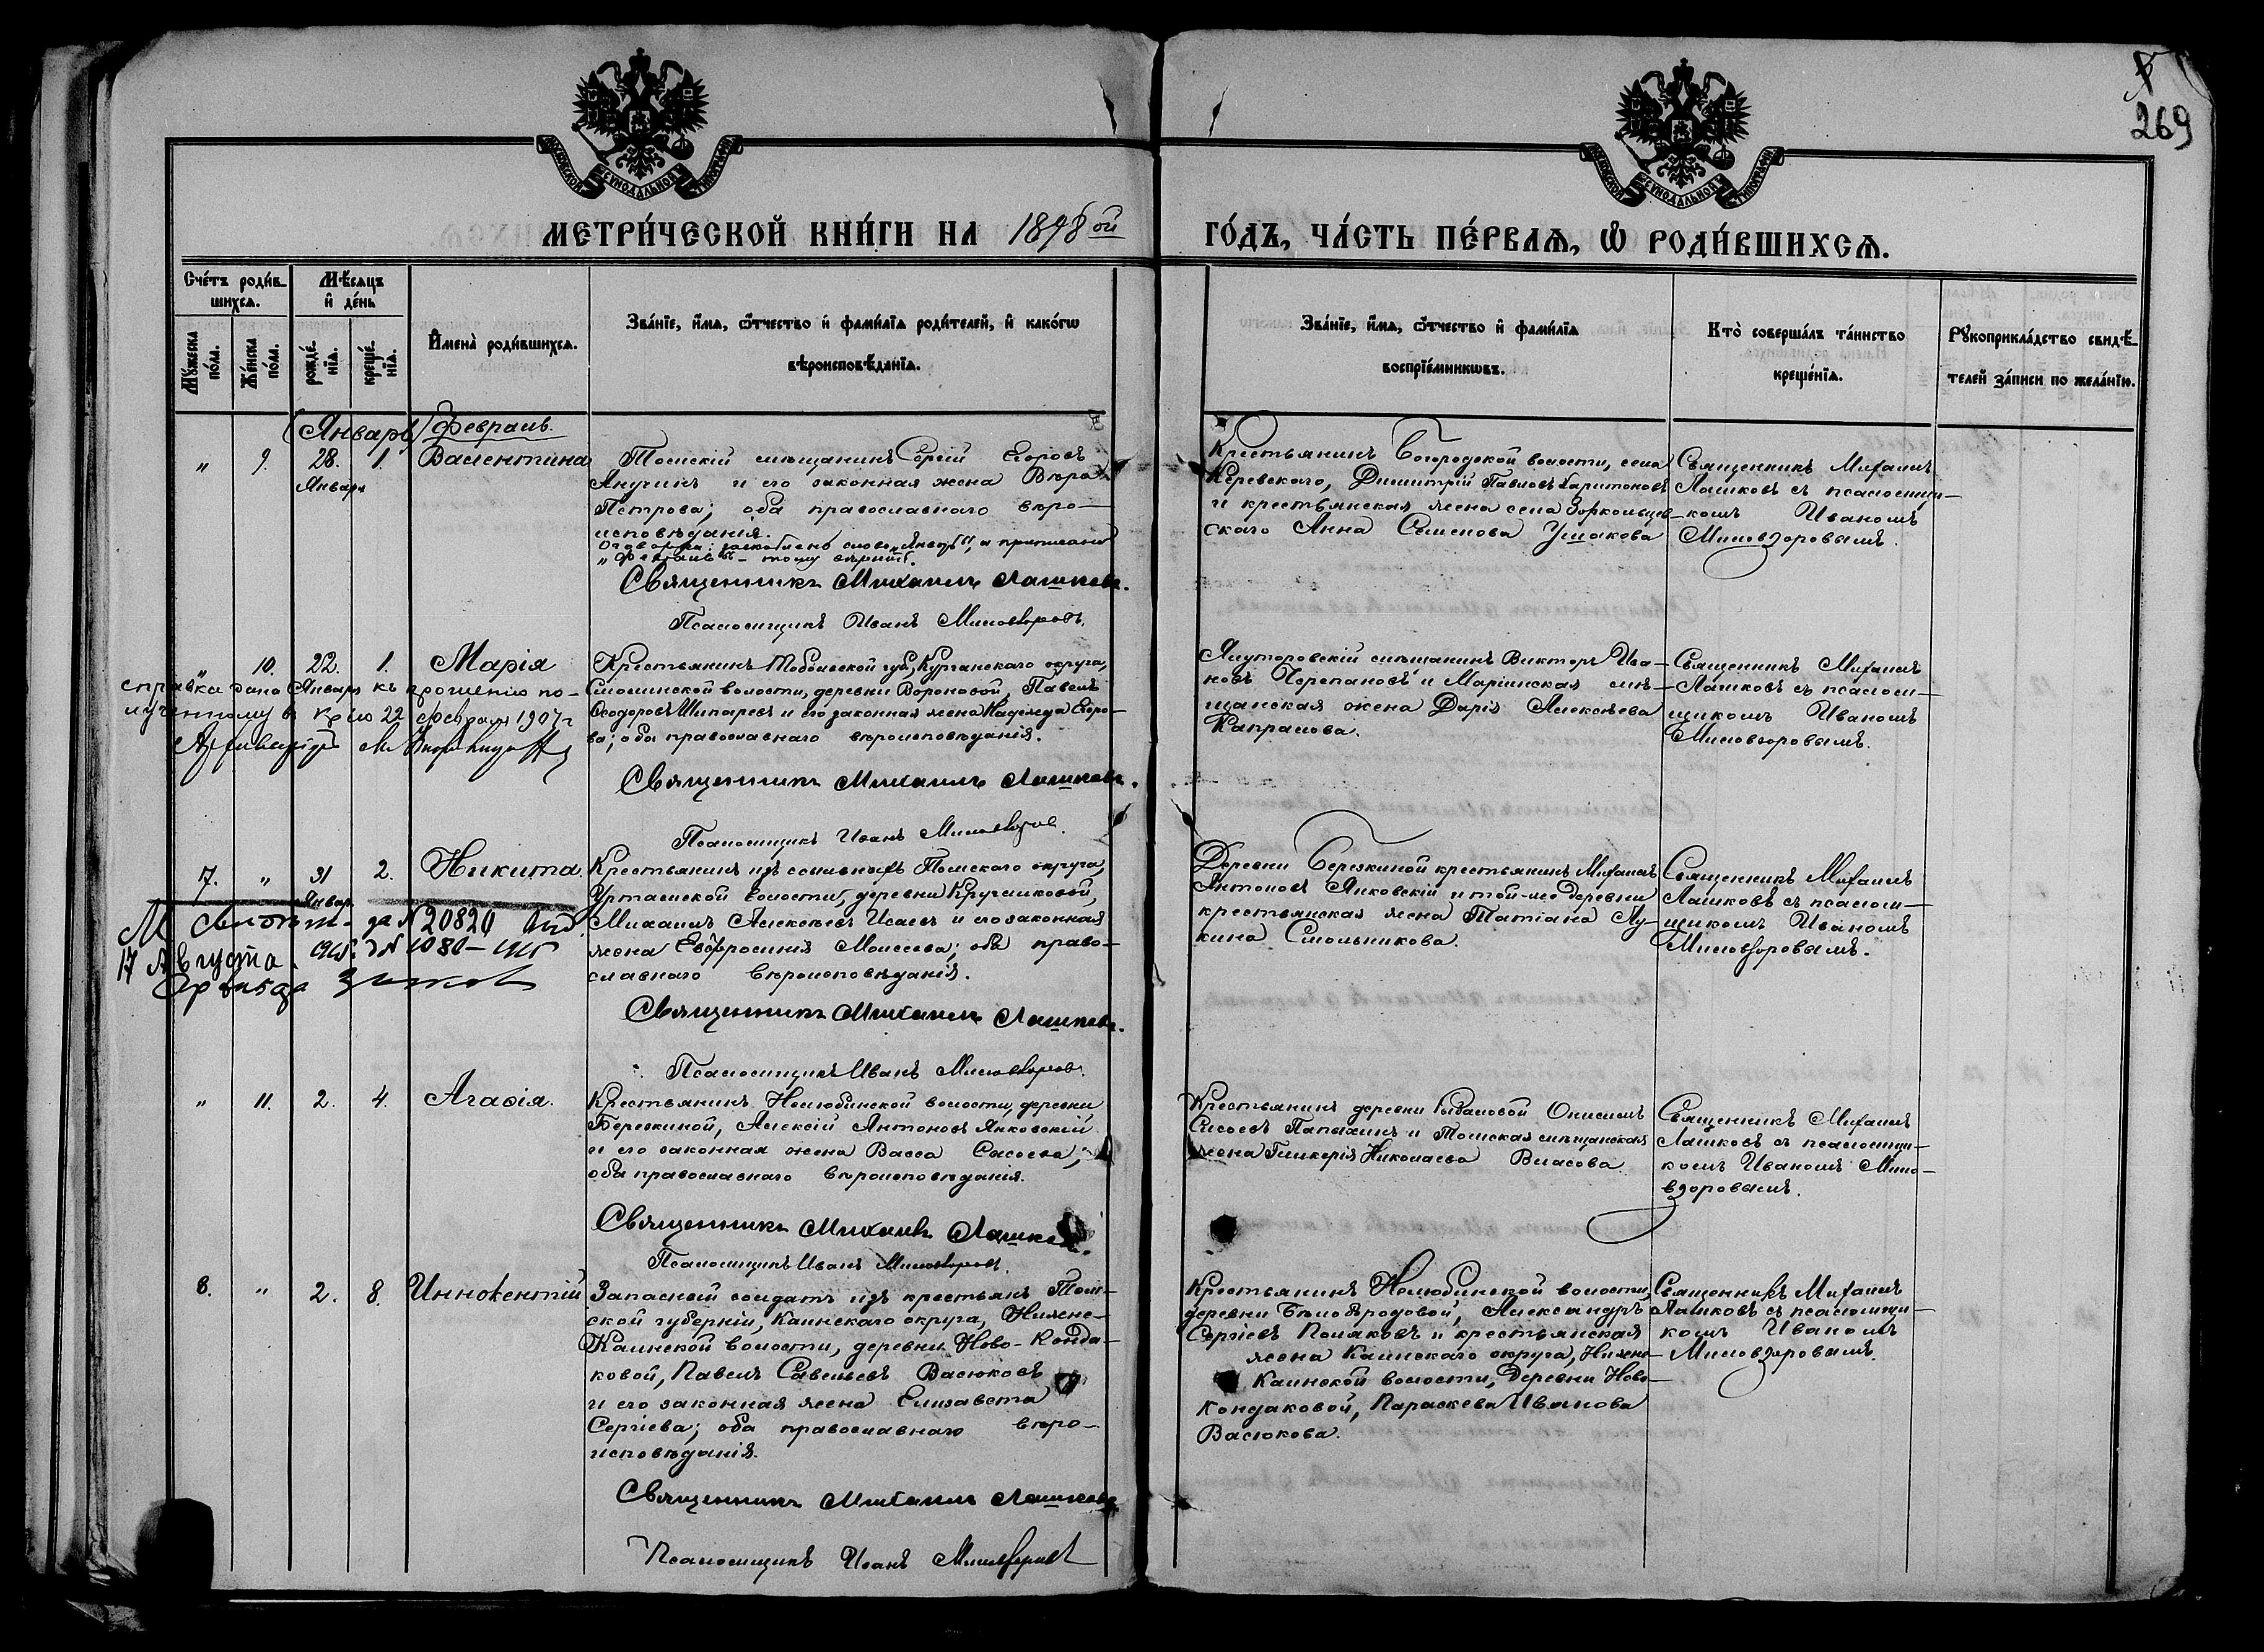 269
МОСКОВСКОЙ СѴНОДАЛЬНОЙ ТИПОГРАФІИ
МОСКОВСКОЙ СѴНОДАЛЬНОЙ ТИПОГРАФІИ
МЕТРИ́ЧЕСКОЙ КНИ́ГИ НА 1898 ой
ГО́ДЪ, ЧА́СТЬ ПЕ́РВАѦ, Ѡ РОДИ́ВШИХСѦ.
Сче́тъ роди́в-
шихсѧ.
Мѣ́сѧцъ
и де́нь
Мꙋ́жеска
по́ла.
Же́нска
по́ла.
рожде́-
нїѧ.
креще́-
нїѧ.
Имена̀ роди́вшихсѧ.
Зва́нїе, и́мѧ, ѻ҆́тчество и фами́лїѧ роди́телей, и како́гѡ
вѣроисповѣ́данїѧ.
Зва́нїе, и́мѧ, ѻ҆́тчество и фами́лїѧ
воспрїе́мникѡвъ.
Кто̀ соверша́лъ та́инство
креще́нїѧ.
Рꙋкоприкла́дство свидѣ́-
телей за́писи по жела́нїю.
(Январь) Февраль.
" 9. 28. 1. Валентина
Января
Томскій мѣщанинъ Сергій Егоровъ
Анучинъ и его законная жена Вѣра
Петрова; оба православнаго вѣро-
исповѣданія.
Оговорка: зачеркнуто слово "Январь", и приписано
"Февраль" – тому вѣрить.
Священникъ Михаилъ Лашковъ.
Псаломщикъ Иванъ Миловзоровъ.
Крестьянинъ Богородской волости, села
Керевского, Димитрій Павловъ Харитоновъ
и крестьянская жена села Зоркольцев-
скаго Анна Семенова Ушакова
Священникъ Михаилъ
Лашковъ съ псаломщи-
комъ Иваномъ
Миловзоровымъ.
" 10. 22. 1. Марія
Января
справка дана къ прошенію по-
лученному в 22 февраля 1907 г
Крестьянинъ Тобольской губ., Курганскаго округа,
Смолинской волости, деревни Вороновой, Павелъ
Ѳеодоровъ Шипаревъ и его законная жена Надежда Егоро-
ва; оба православнаго вѣроисповѣданія.
Священникъ Михаилъ Лашковъ.
Псаломщикъ Иванъ Миловзоровъ.
Ялуторовскій мѣщанинъ Викторъ Ива-
новъ Черепановъ и Маріинская мѣ-
щанская жена Дарія Алексѣева
Капралова.
Священникъ Михаилъ
Лашковъ съ псалом-
щикомъ Иваномъ
Миловзоровымъ.
7. " 31 2. Никита.
Январ
за № 20820
17 Августа 915. № 1080 – 1915
Крестьянинъ изъ ссыльныхъ Томскаго округа,
Уртамской волости, деревни Кругликовой,
Михаилъ Алексѣевъ Исаевъ и его законная
жена Евфросинія Моисеева; оба право-
славнаго вѣроисповѣданія.
Священникъ Михаилъ Лашковъ.
Псаломщикъ Иванъ Миловзоровъ.
Деревни Березкиной крестьянинъ Михаилъ
Антоновъ Янковскій и той-же деревни
крестьянская жена Татіана Лу-
кина Смольникова.
Священникъ Михаилъ
Лашковъ съ псалом-
щикомъ Иваномъ
Миловзоровымъ.
" 11. 2. 4. Агаѳія.
Крестьянинъ Нелюбинской волости, деревни
Березкиной, Алексій Антоновъ Янковскій
и его законная жена Васса Сысоева;
оба православнаго вѣроисповѣданія.
Священникъ Михаилъ Лашковъ.
Псаломщикъ Иванъ Миловзоровъ.
Крестьянинъ деревни Рыбаловой Онисимъ
Сысоевъ Папыхинъ и Томская мѣщанская
жена Гликерія Николаева Власова.
Священникъ Михаилъ
Лашковъ съ псаломщи-
комъ Иваномъ Мило-
взоровымъ.
8. " 2. 8. Иннокентій
Запасный солдатъ изъ крестьянъ Том-
ской губерніи, Каинскаго округа, Нижне-
Каинской волости, деревни Ново-Конда-
ковой, Павелъ Савельевъ Васюковъ
и его законная жена Елизавета
Сергіева; оба православнаго вѣро-
исповѣданія.
Священникъ Михаилъ Лашковъ
Псаломщикъ Иванъ Миловзоровъ
Крестьянинъ Нелюбинской волости,
деревни Бѣлобродовой, Александръ
Сергіевъ Поляковъ и крестьянская
жена Каинскаго округа, Нижне-
Каинской волости, деревни Ново-
Кондаковой, Параскева Иванова
Васюкова.
Священникъ Михаилъ
Лашковъ съ псаломщи-
комъ Иваномъ
Миловзоровымъ.